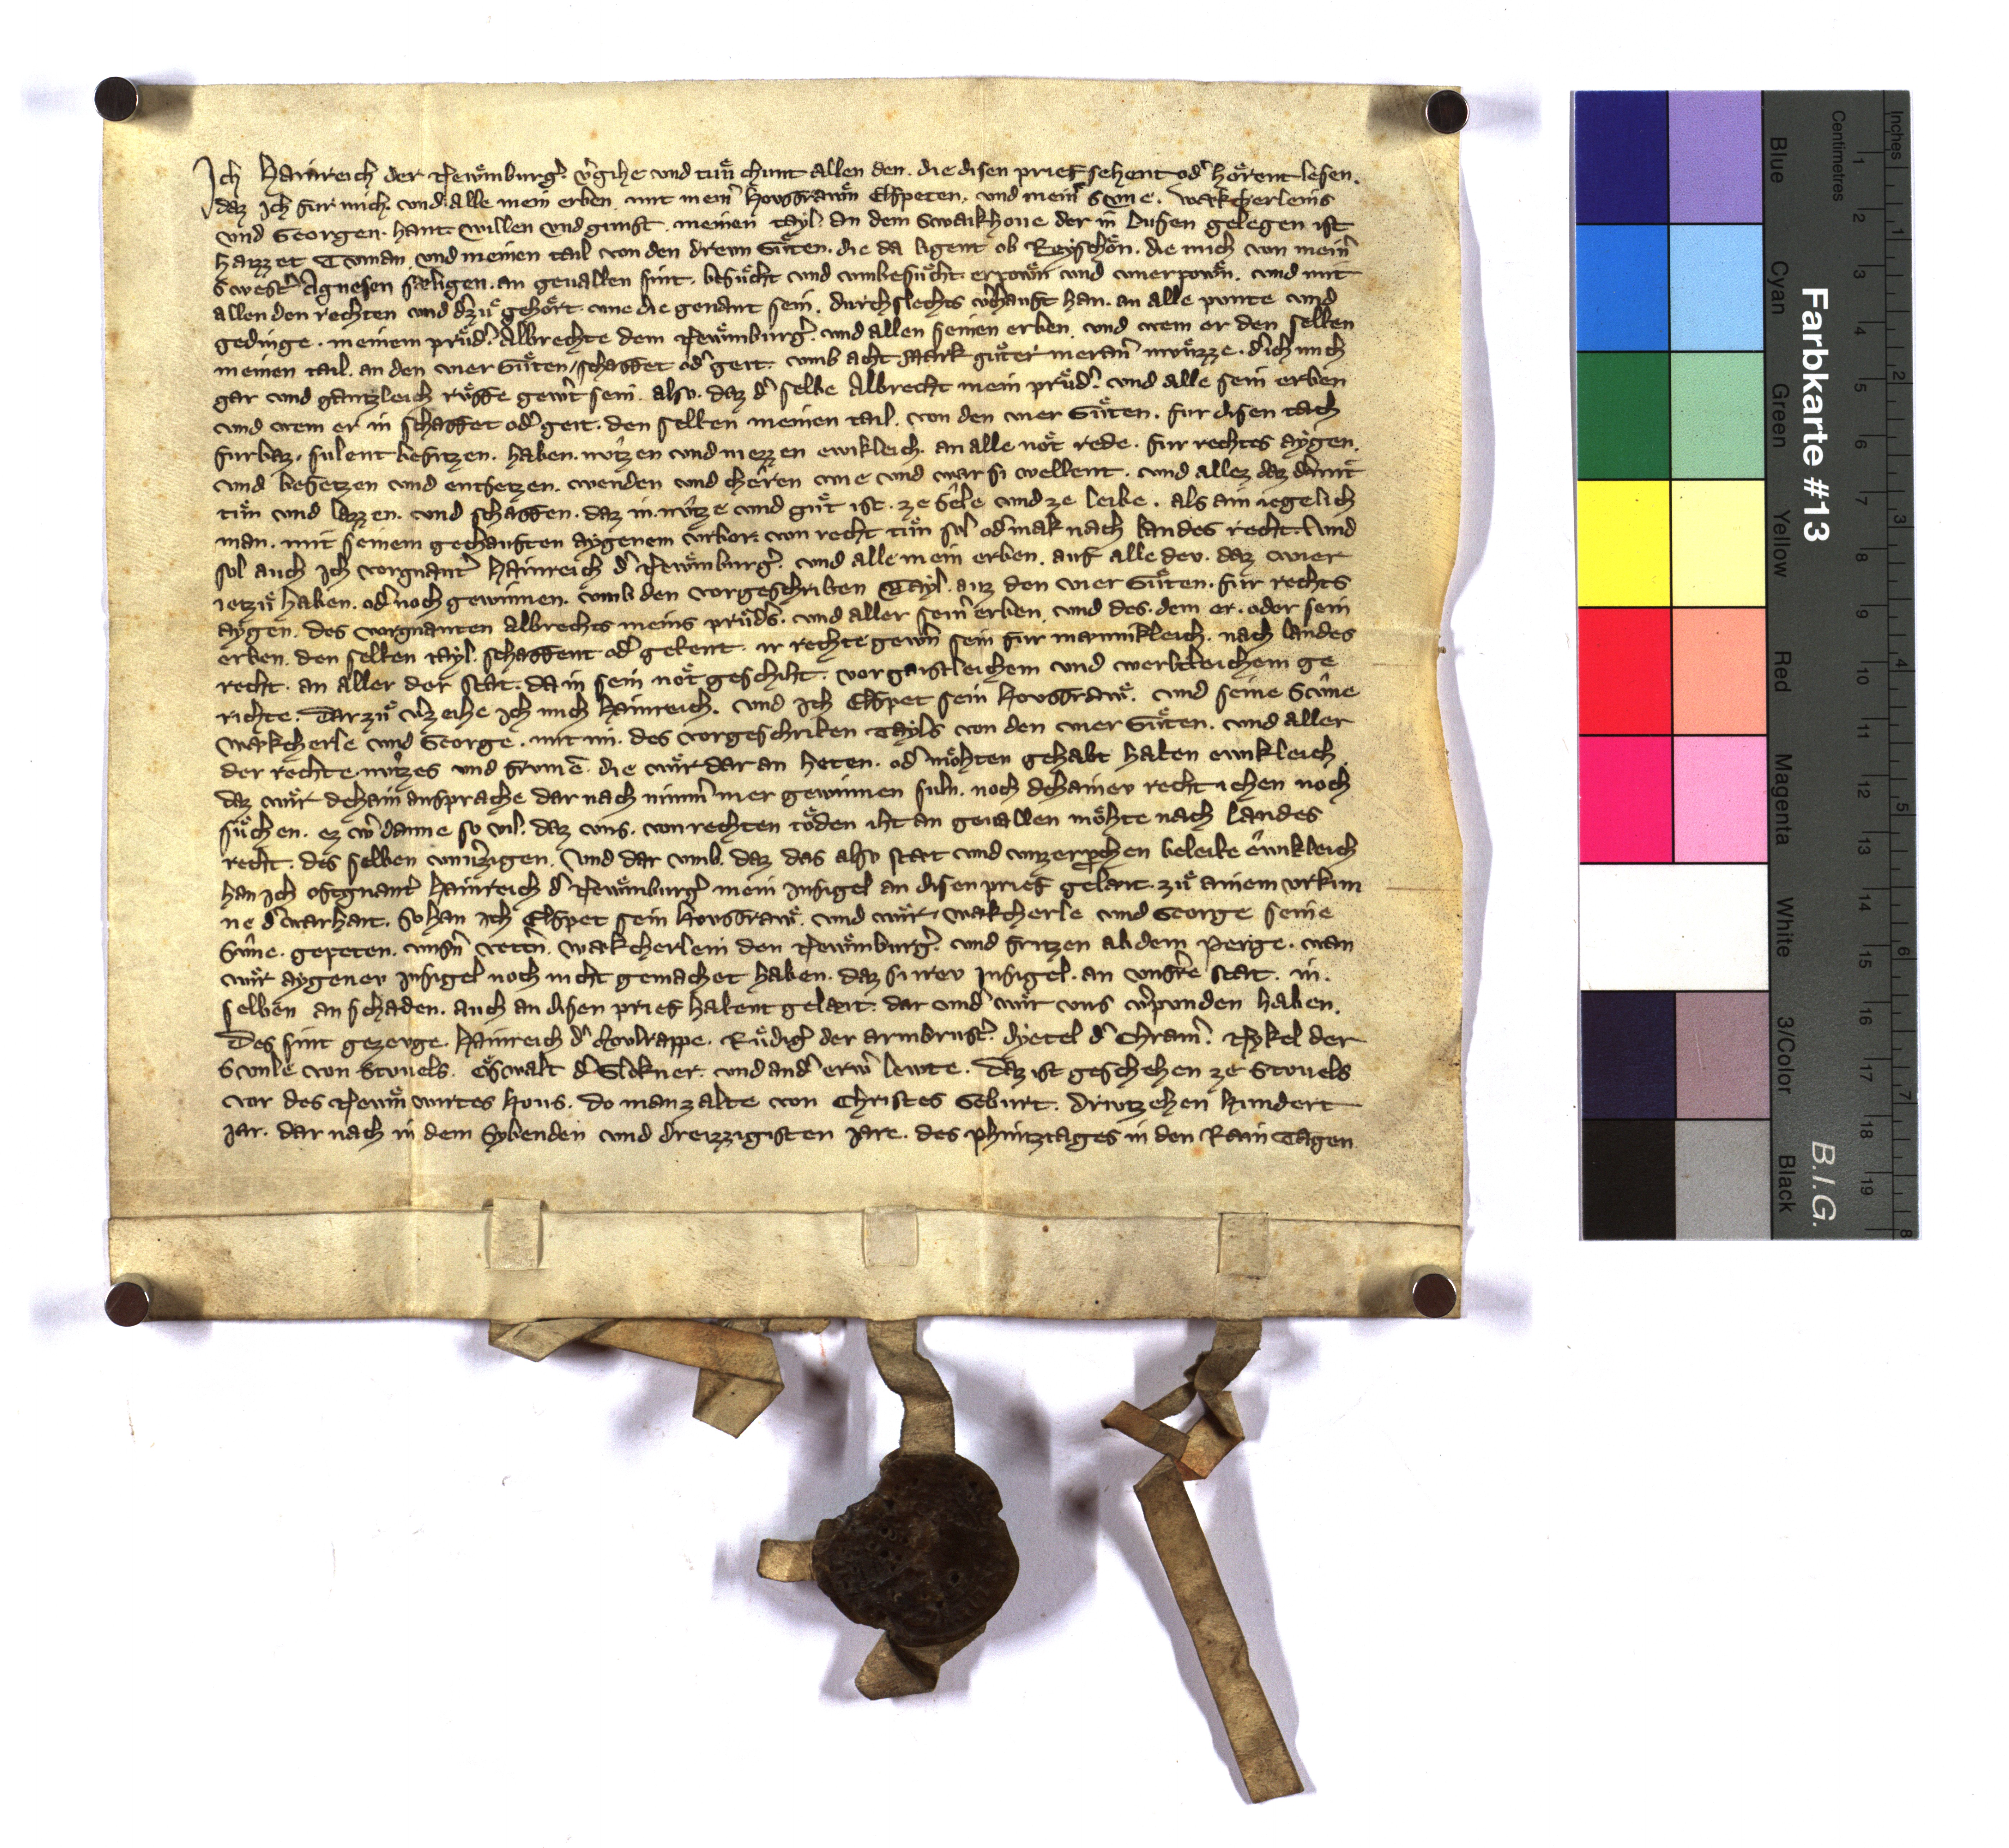 Ich Hainreich der Newͤmburg̉. v̉gihe vnd tuͤn chunt allen den. die disen prief sehent od̉ hoͤrent lesen.
daz Ich fur mich. vnd alle mein erben. mit mein̉ Housfrawͤn Elspeten. vnd mein̉ Sune. Walcherleins
vnd Georgen. hant willen vnd gunst. meinen tayl. an dem Swaikhoue der in Lusen gelegen ist
haizzet Tuman vnd meinen tail von den drewn Guͤten. die da ligent ob Rayschoͤn. die mich von mein̉
Swest̉ Agnesen saͤligen. an geuallen sint. besuͤcht vnd vmbesuͤcht. erpowͤn vnd vnerpowͤn. vnd mit
allen den rechten vnd d̉zuͤ gehoͤrt. wie die genant sein. durchslechts v̉chauft han. an alle punte vnd
gedinge. meinem pruͤd̉. Albrechte dem Newͤmburg̉. vnd allen seinen erben. vnd wem er den selben
meinen tail. an den vier Guͤten/schaffet od̉ geit. vmb acht Mark guͤter meran̉ muͤnzze. d̉ ich mich
gar vnd gantzleich ruͤffe gew̉t sein. also. daz d̉ selbe Albrecht mein pruͤd̉. vnd alle sein erben
vnd wem er in schaffet od̉ geit. den selben meinen tail. von den vier Guͤten. fur disen tach
furbaz. sulent besitzen. haben. nutzen vnd niezzen ewikleich. an alle noͤt rede. fur rechtes aygen.
vnd besetzen vnd entsetzen. wenden vnd cheren wie vnd war si wellent. vnd allez daz damit
tuͤn vnd lazzen. vnd schaffen. daz in nutze vnd guͤt ist. ze Sele vnd ze leibe. als ain iegelich
man. mit seinem gechauften aygenem vrbor. von recht tuͤn sol od̉ mak nach landes recht. Vnd
sol auch Ich vorgnant̉ Hainreich d̉ Newͤmburg̉. vnd alle mein erben. auf alle dev. daz wier
ietzuͤ haben. od̉ noch gewinnen. vmb den vorgeschriben Tayl. auz den vier Guͤten. fur rechts
aygen. des vorgnanten Albrechts meins pruͤd̉s. vnd aller sein̉ erben. vnd des. dem er. oder sein
erben. den selben tayl. schaffent od̉ gebent. ir rechte gew̉n sein fur mannikleich. nach landes
recht. an aller der stat. da in sein noͤt geschiht. vor gaistleichem vnd werltleichem ge
richte. Dar zuͤ v̉zeihe Ich mich Hainreich. vnd Ich Elspet sein Housfrawͤ. vnd seine Sune
Walcherle vnd George. mit im. des vorgeschriben Tayls von den vier Guͤten. vnd aller
der rechte. nutzes vnd frum̄e. die wiͤr dar an heten. od̉ moͤhten gehabt haben ewikleich.
daz wiͤr dehain ansprache dar nach nimm̉ mer gewinnen suln. noch dehainev recht iehen noch
suͤchen. ez w̉ danne so vil. daz vns. von rechten toͤden iht an geuallen moͤhte nach landes
recht. des selben vnu̓zigen. Vnd dar vmb. daz das also stat vnd vnzerprochen beleibe ewikleich
han Ich oftgnant̉ Hainreich d̉ Newͤmburg̉ mein Insigel an disen prief gelait. zuͤ ainem vrkun
ne d̉ warhait. So han Ich Elspet sein Housfrawͤ. vnd wiͤr. Walcherle vnd George seine
Sune. gepeten. vnsn̉ vetern̉. Walcherlein den Newͤmburg̉. vnd Fritzen ab dem Perge. wan
wiͤr aygenev Insigel noch nicht gemachet haben. daz si irev Insigel. an vnsr̉e stat. in.
selben an schaden. auch an disen prief habent gelait. dar vnd̉ wiͤr vns v̉punden haben.
Des sint gezeuge. Hainreich d̉ Koulrappe. Ruͤdig̉ der armbrust̉. Dyetel d̉ Chram̉. Nykel der
Sunle von Stouels. Oswalt d̉ Glokner. vnd and̉ erw̉ lewte. Daz ist geschehen ze Stouels
vor des Newͤn wirtes Hous. do man zalte von Christes Geburt. Driutzehen Hundert
Jar. dar nach in dem Sybenden vnd dreizzigisten Jare. des phintztages in den Rain Tagen
Farbkarte #13
B.I.G.
Inches
Centimetres
1 2 3 4 5 6 7 8 9 10 11 12 13 14 15 16 17 18 19
1 2 3 4 5 6 7 8
Blue
Cyan
Green
Yellow
Red
Magenta
White
3/Color
Black